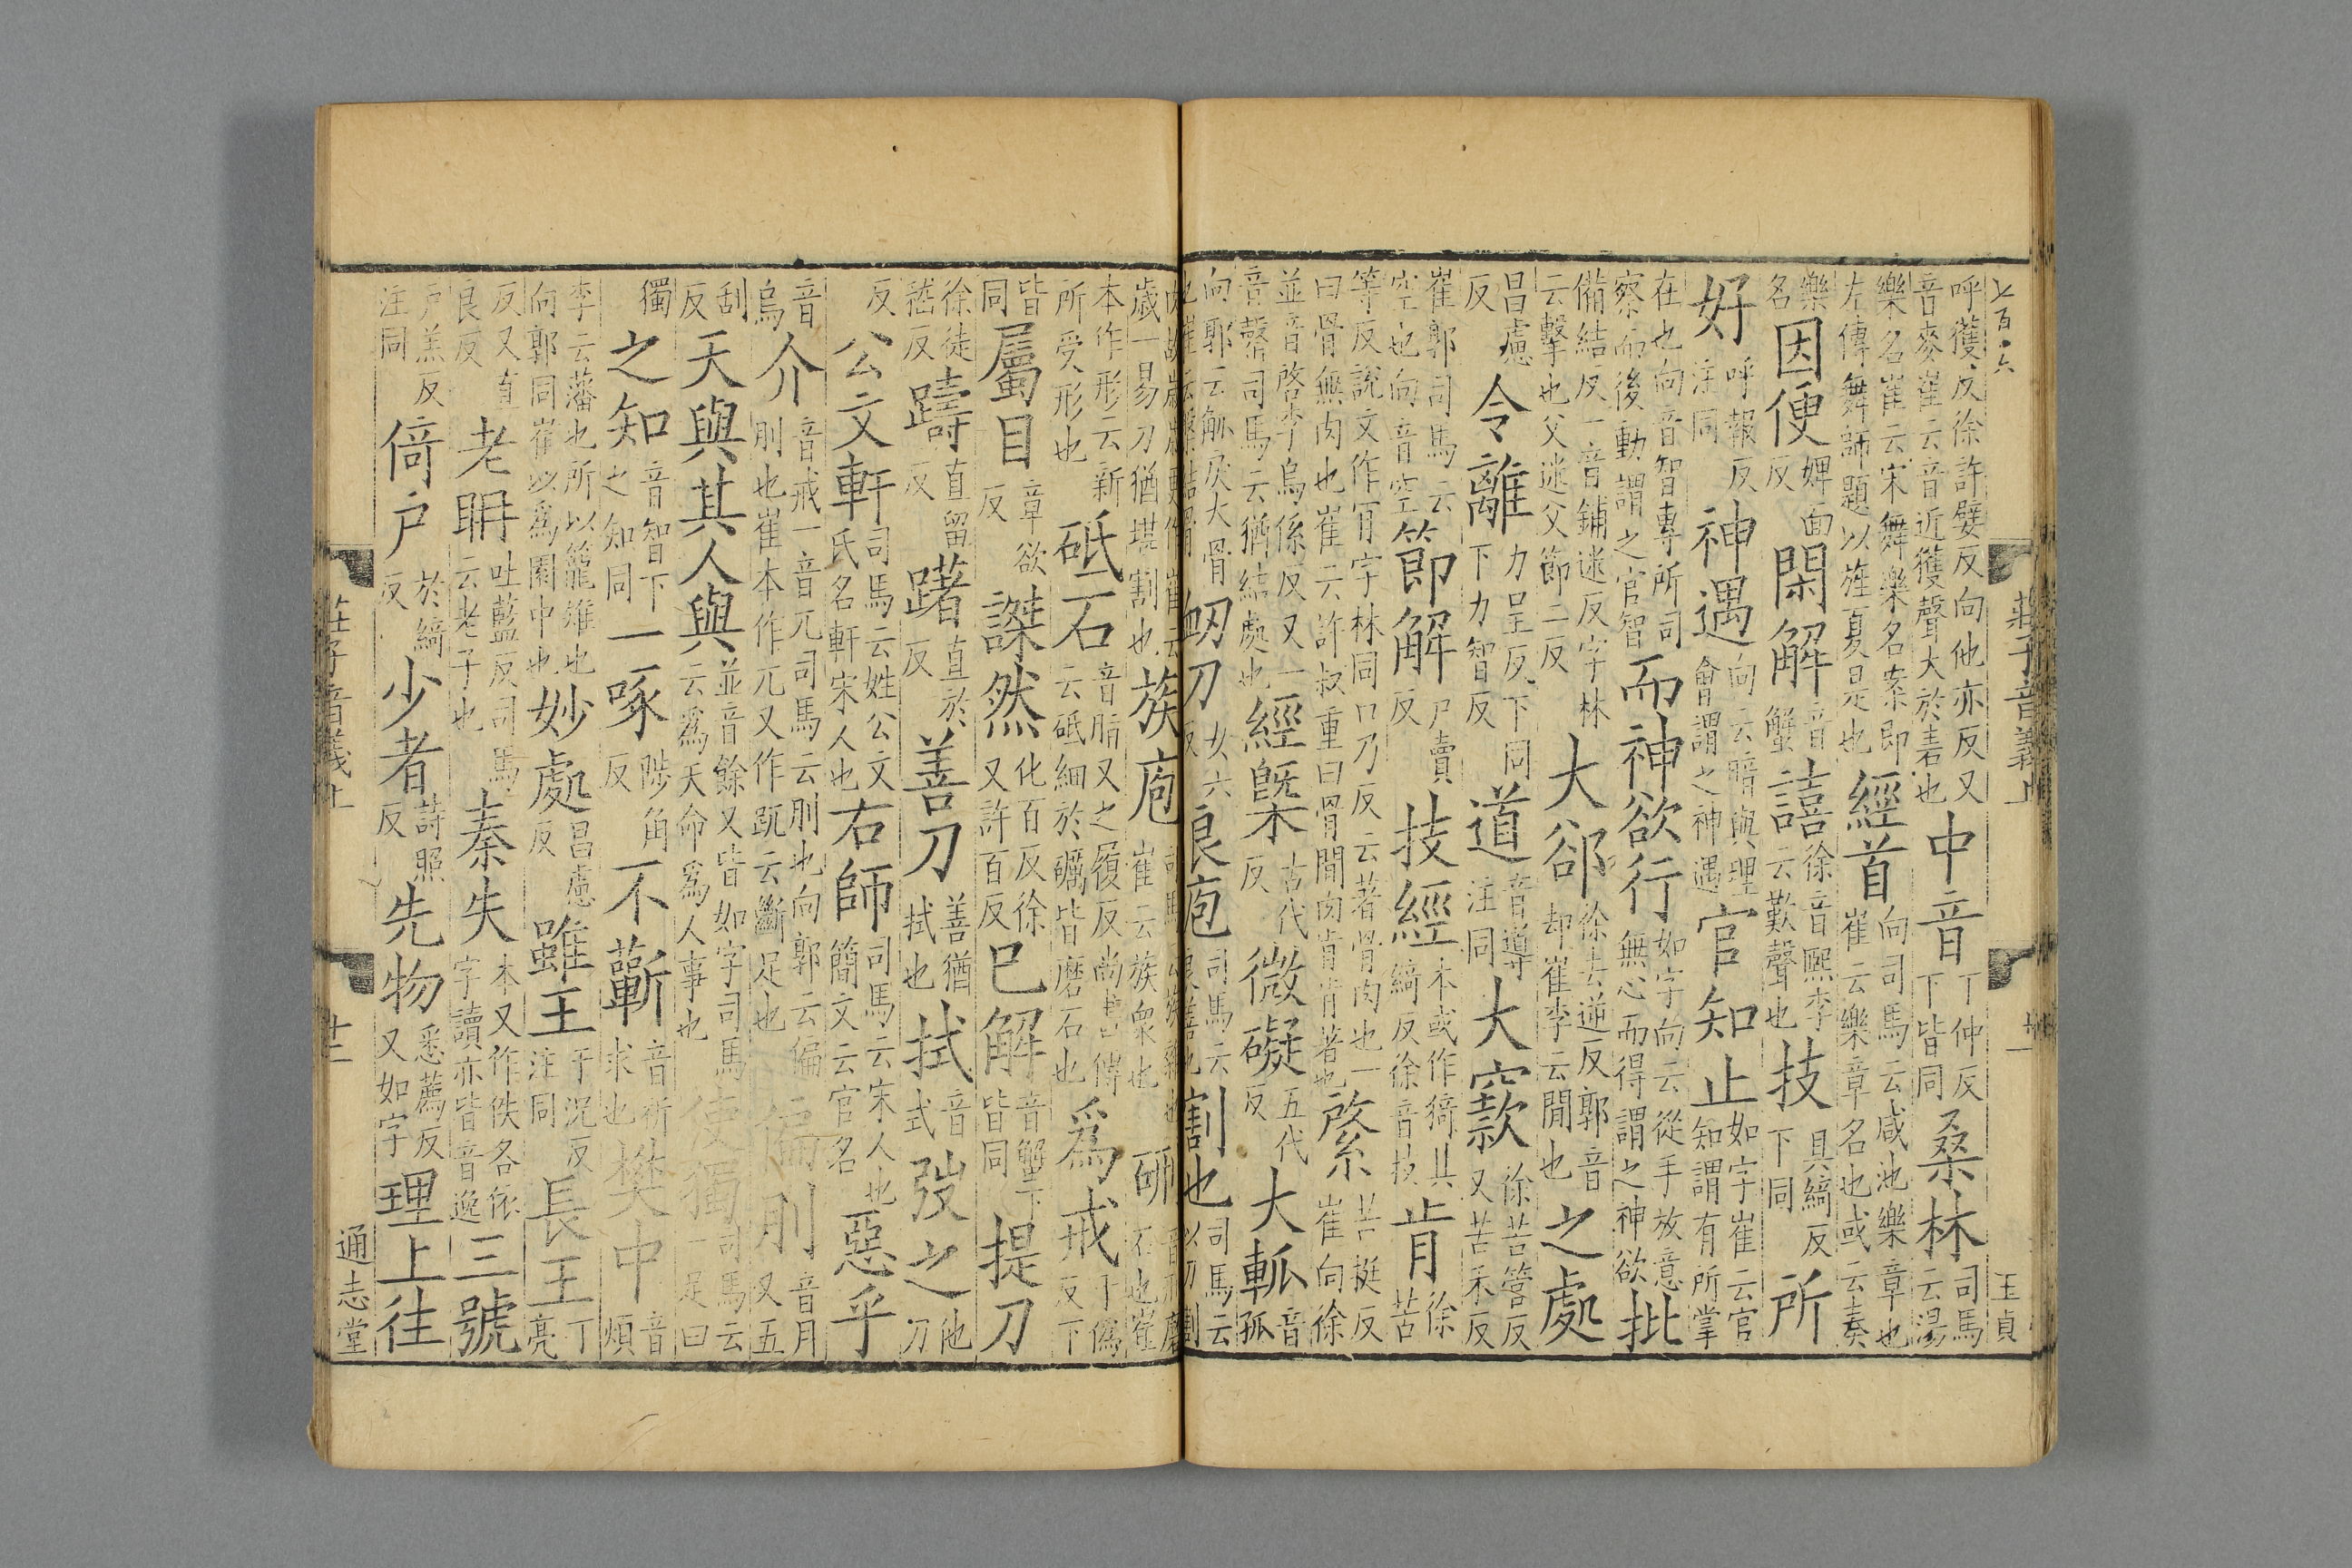 七百〇六 莊子音義上 十一 王貞
呼獲反徐許嬖反向他亦反又音麥崔云音近獲聲大於砉也 中音 丁仲反下皆同 桑林 司馬云湯
樂名崔云宋舞樂名案即左傳舞師題以旌夏是也 經首 向司馬云咸池樂章也崔云樂章名也或云奏
樂名 因便 婢面反 閑解 音蟹 譆 徐音熙李云歎聲也 技 具綺反下同 所
好 呼報反注同 神遇 向云暗與理會謂之神遇 官知止 如字崔云官知謂有所掌
在也向音智專所司察而後動謂之官智 而神欲行 如字向云從手放意無心而得謂之神欲 批
備結反一音鋪迷反字林云擊也父迷父節二反 大郤 徐去逆反郭音却崔李云閒也 之處
昌慮反 令離 力呈反下同下力智反 道 音導注同 大窾 徐苦管反又苦禾反
崔郭司馬云空也向音空 節解 尸賣反 技經 本或作猗其綺反徐音技 肯 徐苦
等反說文作肎字林同口乃反云著骨肉也一曰骨無肉也崔云許叔重曰骨閒肉肯肯著也 綮 苦挺反崔向徐
並音啓李烏係反又一音罄司馬云猶結處也 經槩 古代反 微礙 五代反 大軱 音孤
向郭云觚戾大骨也崔云槃結骨 衂刀 女六反 良庖 司馬云良善也 割也 司馬云以刀割
肉故歲歲更作崔云歲一易刀猶堪割也 族庖 司馬云族雜也崔云族衆也 硎 音刑磨石也崔
本作形云新所受形也 砥石 音脂又之履反尚書傳云砥細於礪皆磨石也 爲戒 于僞反下
皆同 屬目 章欲反 謋然 化百反徐又許百反 已解 音蟹下皆同 提刀
徐徒嵇反 躊 直留反 躇 直於反 善刀 善猶拭也 拭 音式 弢之 他刀
反 公文軒 司馬云姓公文氏名軒宋人也 右師 司馬云宋人也簡文云官名 惡乎
音烏 介 音戒一音兀司馬云刖也向郭云偏刖也崔本作兀又作趴云斷足也 偏刖 音月又五
刮反 天與其人與 並音餘又皆如字司馬云爲天命爲人事也 使獨 司馬云一足曰
獨 之知 音智下之知同 一啄 陟角反 不蘄 音祈求也 樊中 音煩
李云藩也所以籠雉也向郭同崔以爲園中也 妙處 昌慮反 雖王 于況反注同 長王 丁亮
反又直良反 老聃 吐藍反司馬云老子也 秦失 本又作佚各依字讀亦皆音逸 三號
戶羔反注同 倚戶 於綺反 少者 詩照反 先物 悉薦反又如字 理上往
莊子音義上 十二 通志堂